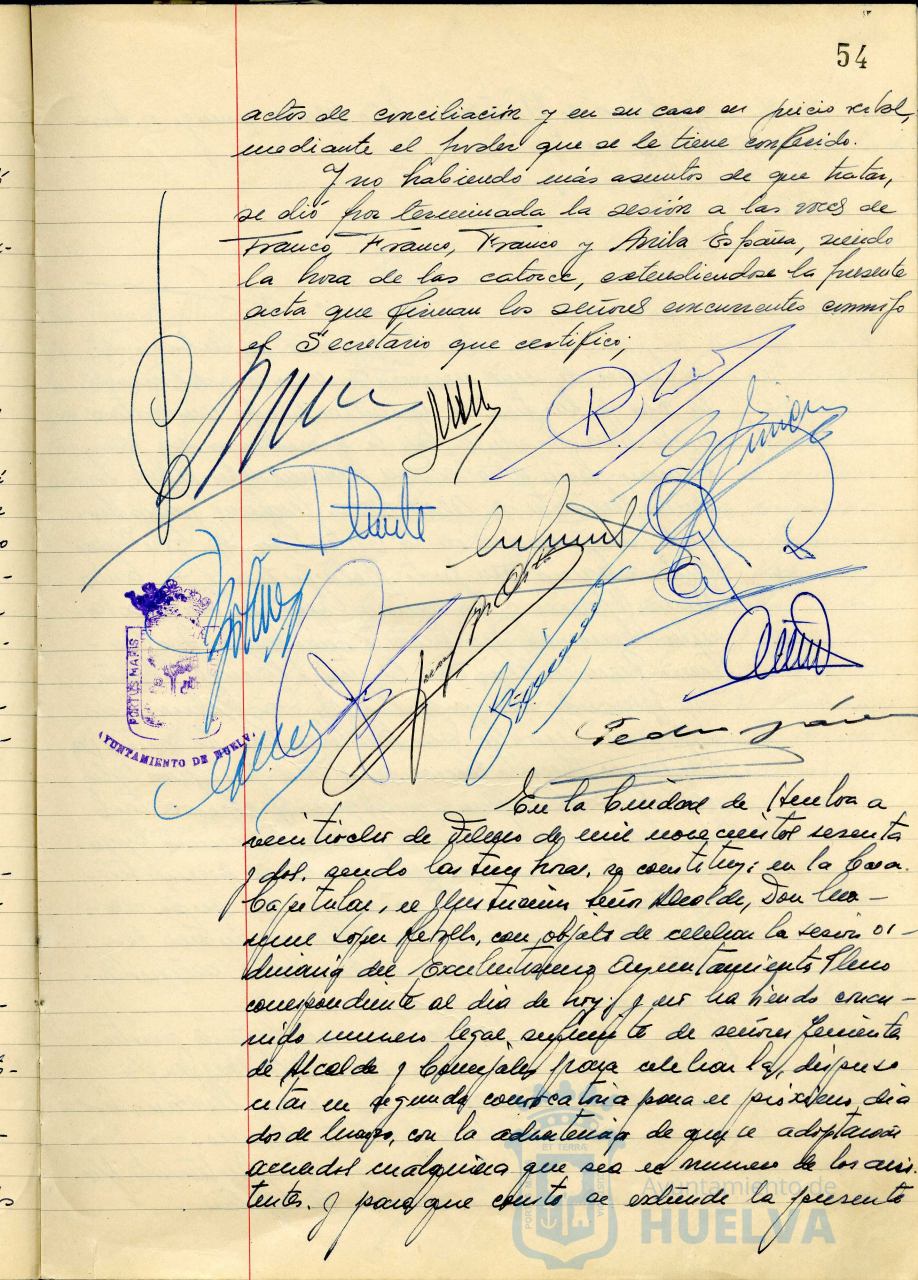 54
actos de conciliación y en su caso en juicio verbal,
mediante el poder que se le tiene conferido.
Y no habiendo más asuntos de que tratar,
se dió por terminada la sesión a las voces de
Franco, Franco, Franco y Arriba España, siendo
la hora de las catorce, extendiendose la presente
acta que firman los señores concurrentes conmigo
el Secretario que certifico;
Duarte
PORTUS MARIS
AYUNTAMIENTO DE HUELVA
Pedro
En la Ciudad de Huelva a
veintiocho de Febrero de mil novecientos sesenta
y dos, siendo las horas, se constituyó en la Casa
Capitular, el Ilustrísimo Señor Alcalde, Don
López, con objeto de celebrar la sesión or-
dinaria del Excelentísimo Ayuntamiento Pleno
correspondiente al dia de hoy; y no habiendo concu-
rrido numero legal suficiente de señores Tenientes
de Alcalde y Concejales para celebrarla, dispuso
citar en segunda convocatoria para el próximo dia
dos de Marzo, con la advertencia de que se adoptarán
acuerdos cualquiera que sea el numero de los asis-
tentes. Y para que conste se extiende la presente
Ayuntamiento de
HUELVA